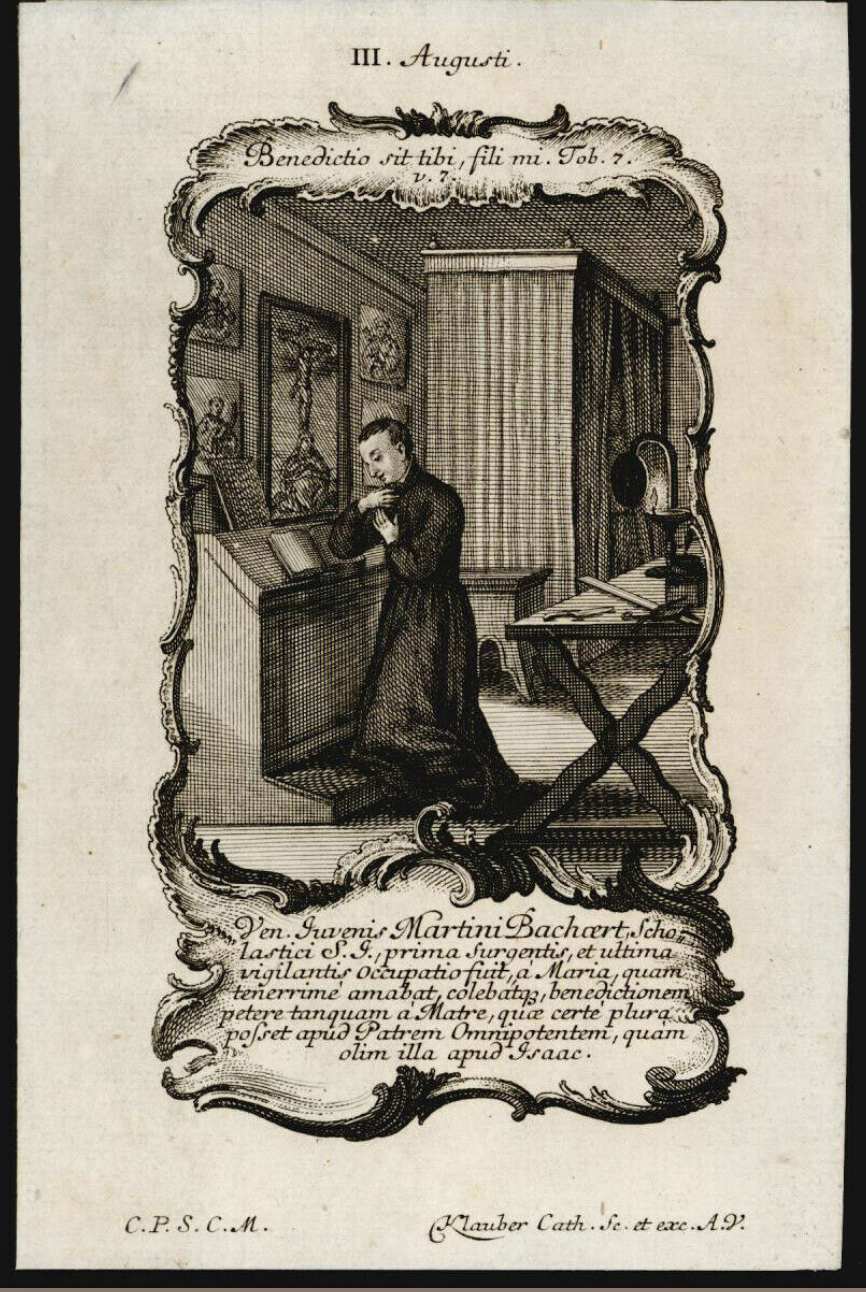 III. Augusti.
Benedictio sit tibi, fili mi. Tob. 7.
v. 7.
Ven. Iuvenis Martini Bachært, Scho⸗
lastici S. I., prima surgentis, et ultima
vigilantis Occupatio fuit, à Maria, quam
tenerrimè amabat, colebatqꝫ, benedictionem
petere tanquam à Matre, quæ certè plura
posset apud Patrem Omnipotentem, quàm
olim illa apud Isaac.
C. P. S. C. M.
Klauber Cath. Sc. et exc. A. V.